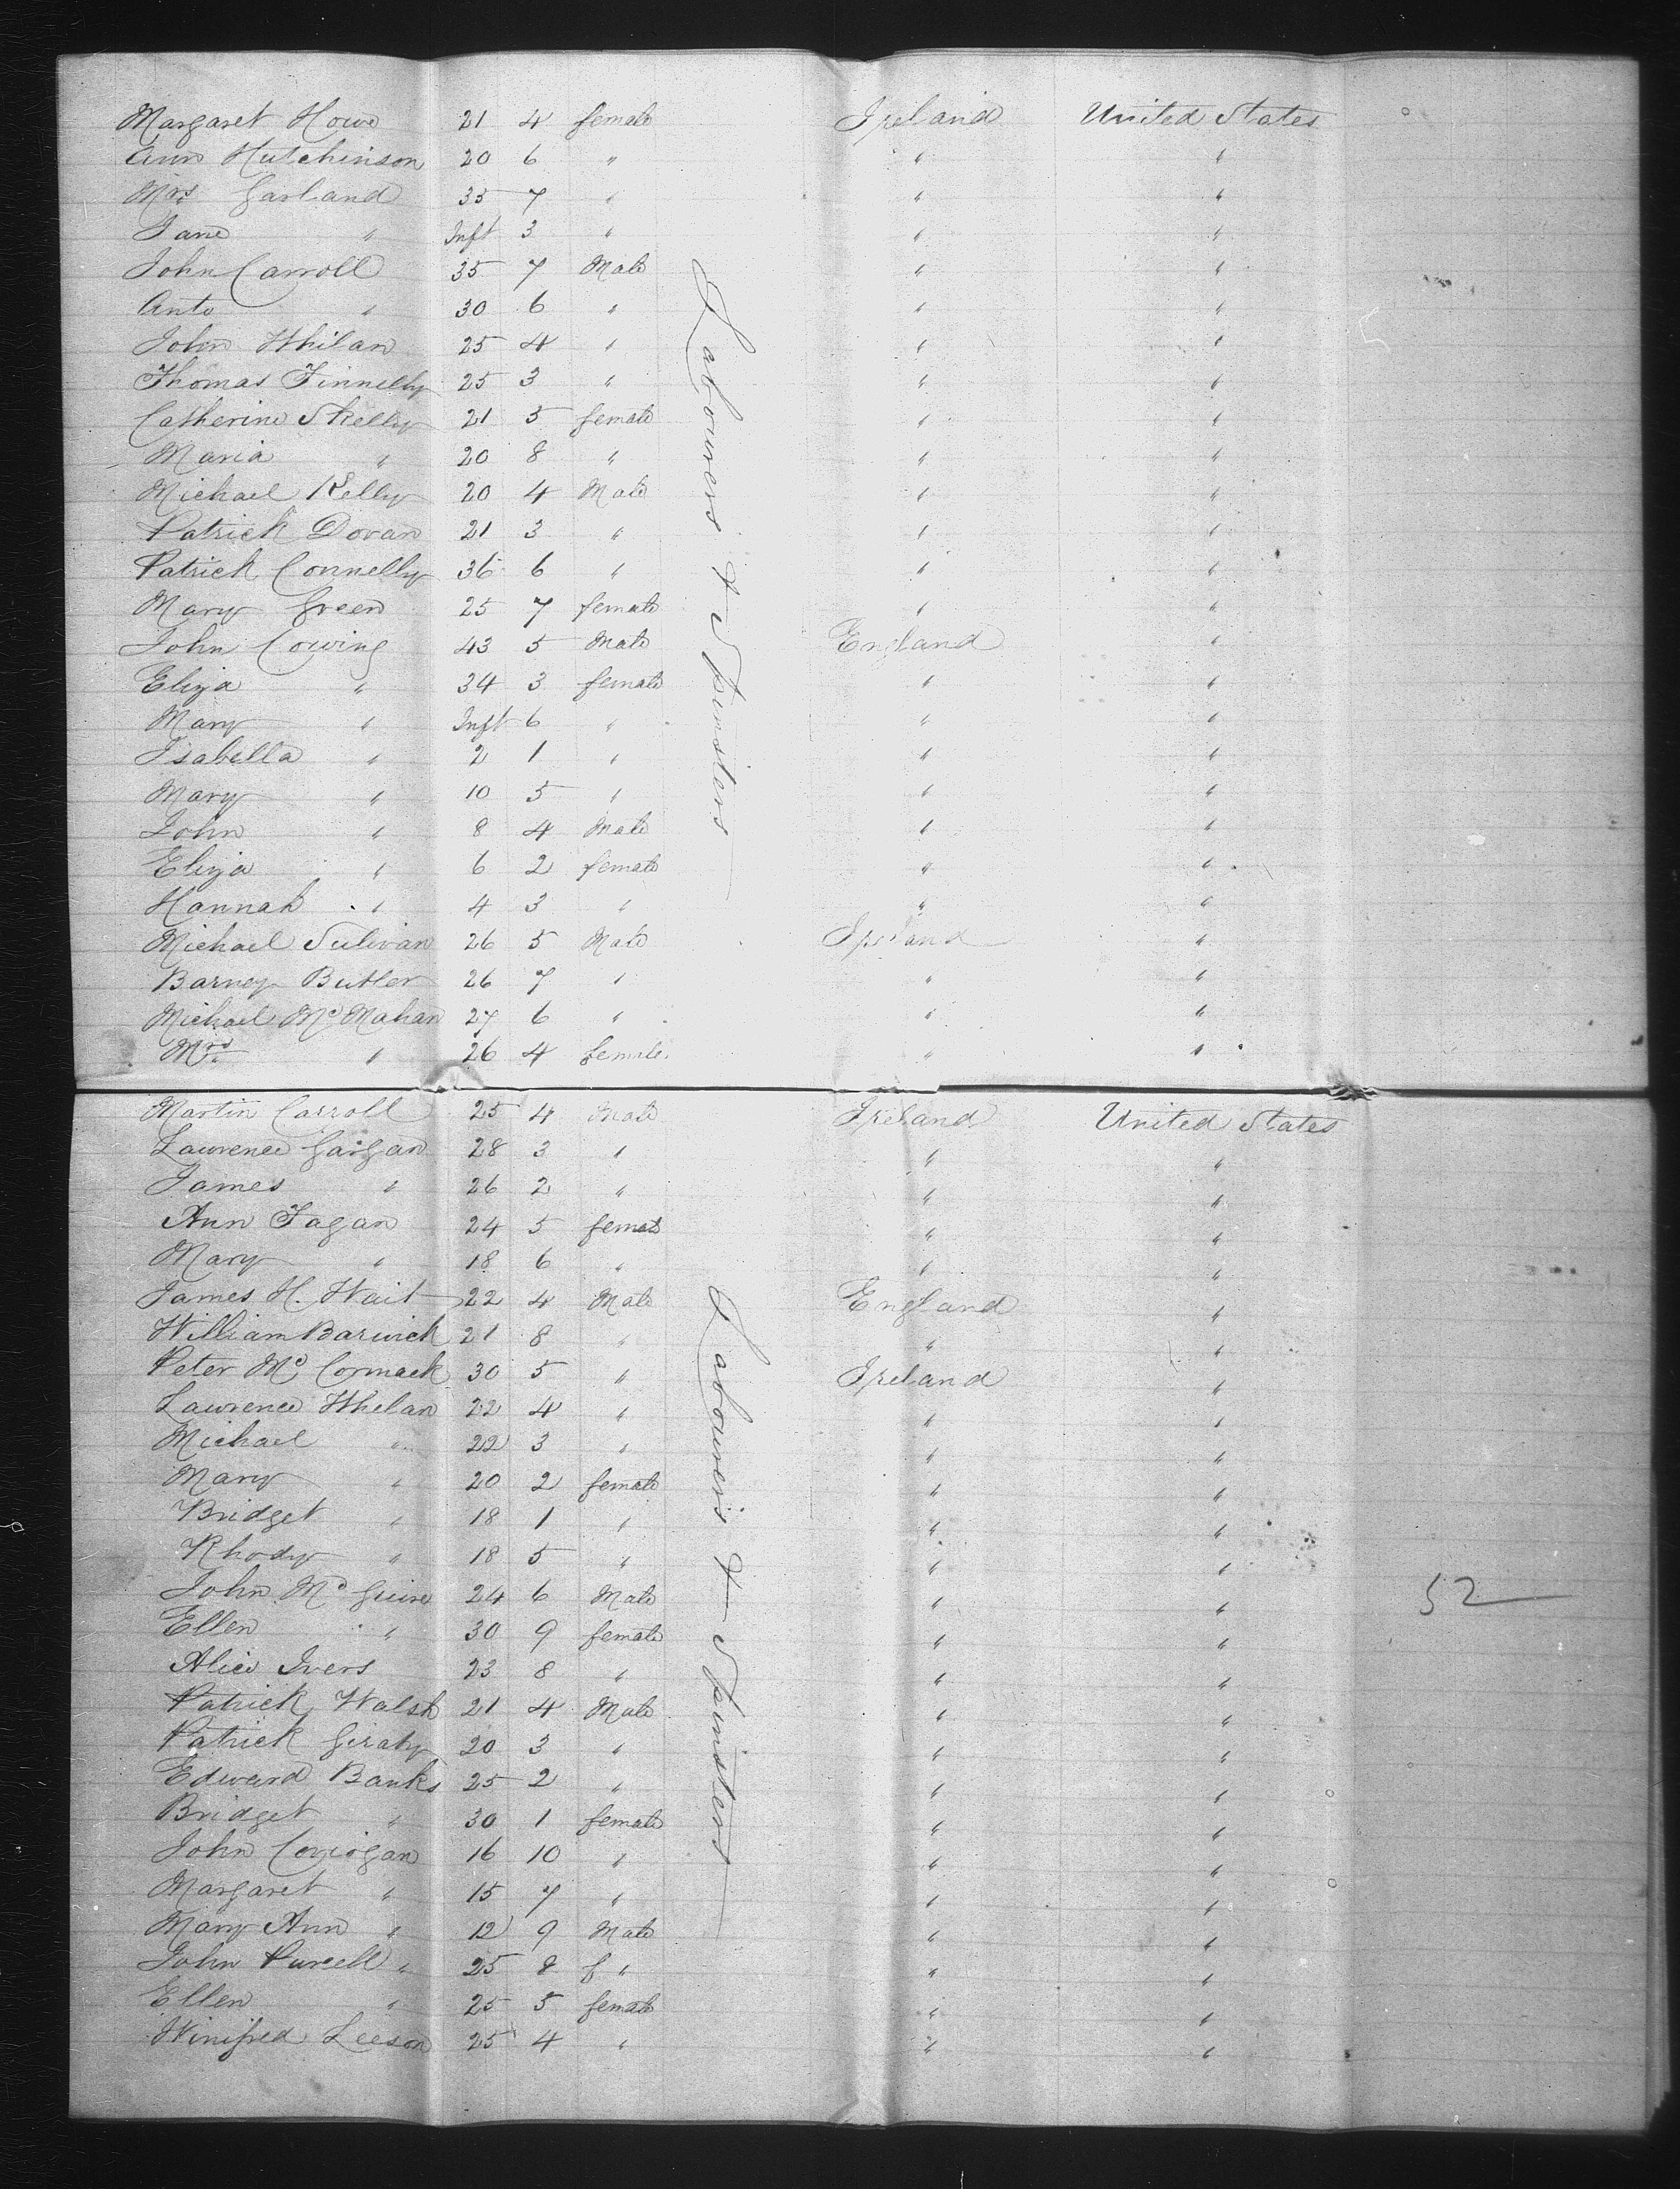 Margaret Howe 21 4 female Ireland United States
Ann Hutchinson 20 6 " " "
Mrs Garland 35 7 " " "
Jane " Inft 3 " " "
John Carroll 35 7 Male " "
Anto " 30 6 " " "
John Whilan 25 4 " " "
Thomas Finnelly 25 3 " " "
Catherine Skelly 21 5 female " "
Maria " 20 8 " " "
Michael Kelly 20 4 Male " "
Patrick Dovan 21 3 " " "
Patrick Connelly 36 6 " " "
Mary Green 25 7 female " "
John Cowing 43 5 Male England "
Eliza " 34 3 female " "
Mary " Inft 6 " " "
Isabella " 2 1 " " "
Mary " 10 5 " " "
John " 8 4 Male " "
Eliza " 6 2 female " "
Hannah " 4 3 " " "
Michael Sulivan 26 5 Male Ireland "
Barney Butler 26 7 " " "
Michael Mc Mahan 27 6 " " "
Mrs " 26 4 female " "
Labourers & Spinsters
Martin Carroll 25 4 Male Ireland United States
Lawrence Gargan 28 3 " " "
James " 26 2 " " "
Ann Fagan 24 5 female " "
Mary " 18 6 " " "
James H. Wait 22 4 Male England "
William Barwick 21 8 " " "
Peter Mc Cormack 30 5 " Ireland "
Lawrence Whelan 22 4 " " "
Michael " 22 3 " " "
Mary " 20 2 female " "
Bridget " 18 1 " " "
Rhody " 18 5 " " "
John Mc Guire 24 6 Male " "
Ellen " 30 9 female " "
Alice Ivers 23 8 " " "
Patrick Walsh 21 4 Male " "
Patrick Giraty 20 3 " " "
Edward Banks 25 2 " " "
Bridget " 30 1 female " "
John Corrogan 16 10 " " "
Margaret " 15 7 " " "
Mary Ann " 12 9 Male " "
John Purcell " 25 8 f " " "
Ellen " 25 5 female " "
Winifred Leeson 25 4 " " "
Labourers & Spinsters
52